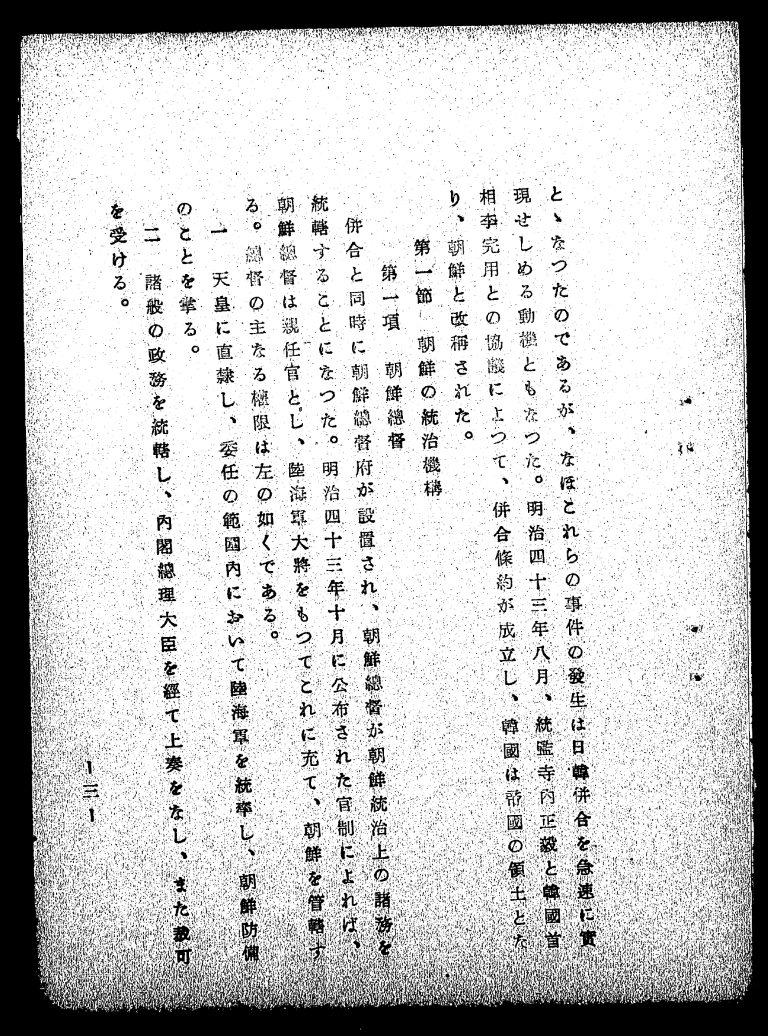 とゝなつたのであるが、なほこれらの事件の發生は日韓併合を急速に實
現せしめる動機ともなつた。明治四十三年八月、統監寺內正毅と韓國首
相李完用との協議によつて、併合條約が成立し、韓國は帝國の領土とな
り、朝鮮と改稱された。
第一節　朝鮮の統治機構
第一項　朝鮮總督
併合と同時に朝鮮總督府が設置され、朝鮮總督が朝鮮統治上の諸務を
統轄することになつた。明治四十三年十月に公布された官制によれば、
朝鮮總督は親任官とし、陸海軍大將をもつてこれに充て、朝鮮を管轄す
る。總督の主なる權限は左の如くである。
一　天皇に直隷し、委任の範圍內において陸海軍を統率し、朝鮮防備
のことを掌る。
二　諸般の政務を統轄し、內閣總理大臣を經て上奏をなし、また裁可
を受ける。
―三―